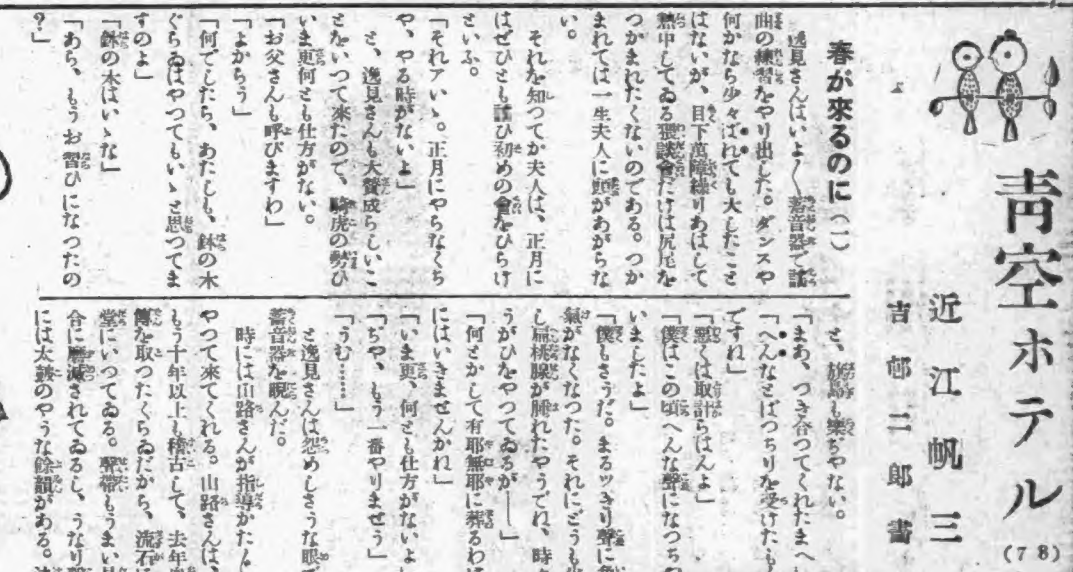 青空ホテル
(78)
近江帆三
吉邨二郎畫
春が來るのに(一)
逸見さんはいよ〳〵蓄音器で謠
曲の練習をやり出した。ダンスや
何かなら少々ばれても大したこと
はないが、目下萬障繰りあはして
熱中してゐる猥談會だけは尻尾を
つかまれたくないのである。つか
まれては一生夫人に頭があがらな
い。
それを知つてか夫人は、正月に
はぜひとも謠ひ初めの會をひらけ
といふ。
「それアいゝ。正月にやらなくち
や、やる時がないよ」
と、逸見さんも大賛成らしいこ
とをいつて來たので、騎虎の勢ひ
いま更何とも仕方がない。
「お父さんも呼びますわ」
「よからう」
「何でしたら、あたしも、鉢の木
ぐらゐはやつてもいゝと思つてま
すのよ」
「鉢の木はいゝな」
「あら、もうお習ひになつたの
?」
と、放島も樂ぢやない。
「まあ、つき合つてくれたまへ
「へんなとばつちりを受けたも
ですね」
「惡くは取計らはんよ」
「僕はこの頃へんな聲になつち
いましたよ」
「僕もさうだ。まるツきり聲に
氣がなくなつた。それにどうも
し扁桃腺が腫れたやうでね、時
うがひをやつてゐるが──」
「何とかして有耶無耶に葬るわ
にはいきませんかね」
「いま更、何とも仕方がないよ
「ぢや、もう一番やりませう」
「うむ……」
と逸見さんは怨めしさうな眼で
蓄音器を睨んだ。
時には山路さんが指導かたし
やつて來てくれる。山路さんは、
もう十年以上も稽古して、去年
傳を取つたくらゐだから、流石
堂にいつてゐる。聲帶もうまい
合に磨滅されてゐるし、うなり
には太鼓のやうな餘韻がある。